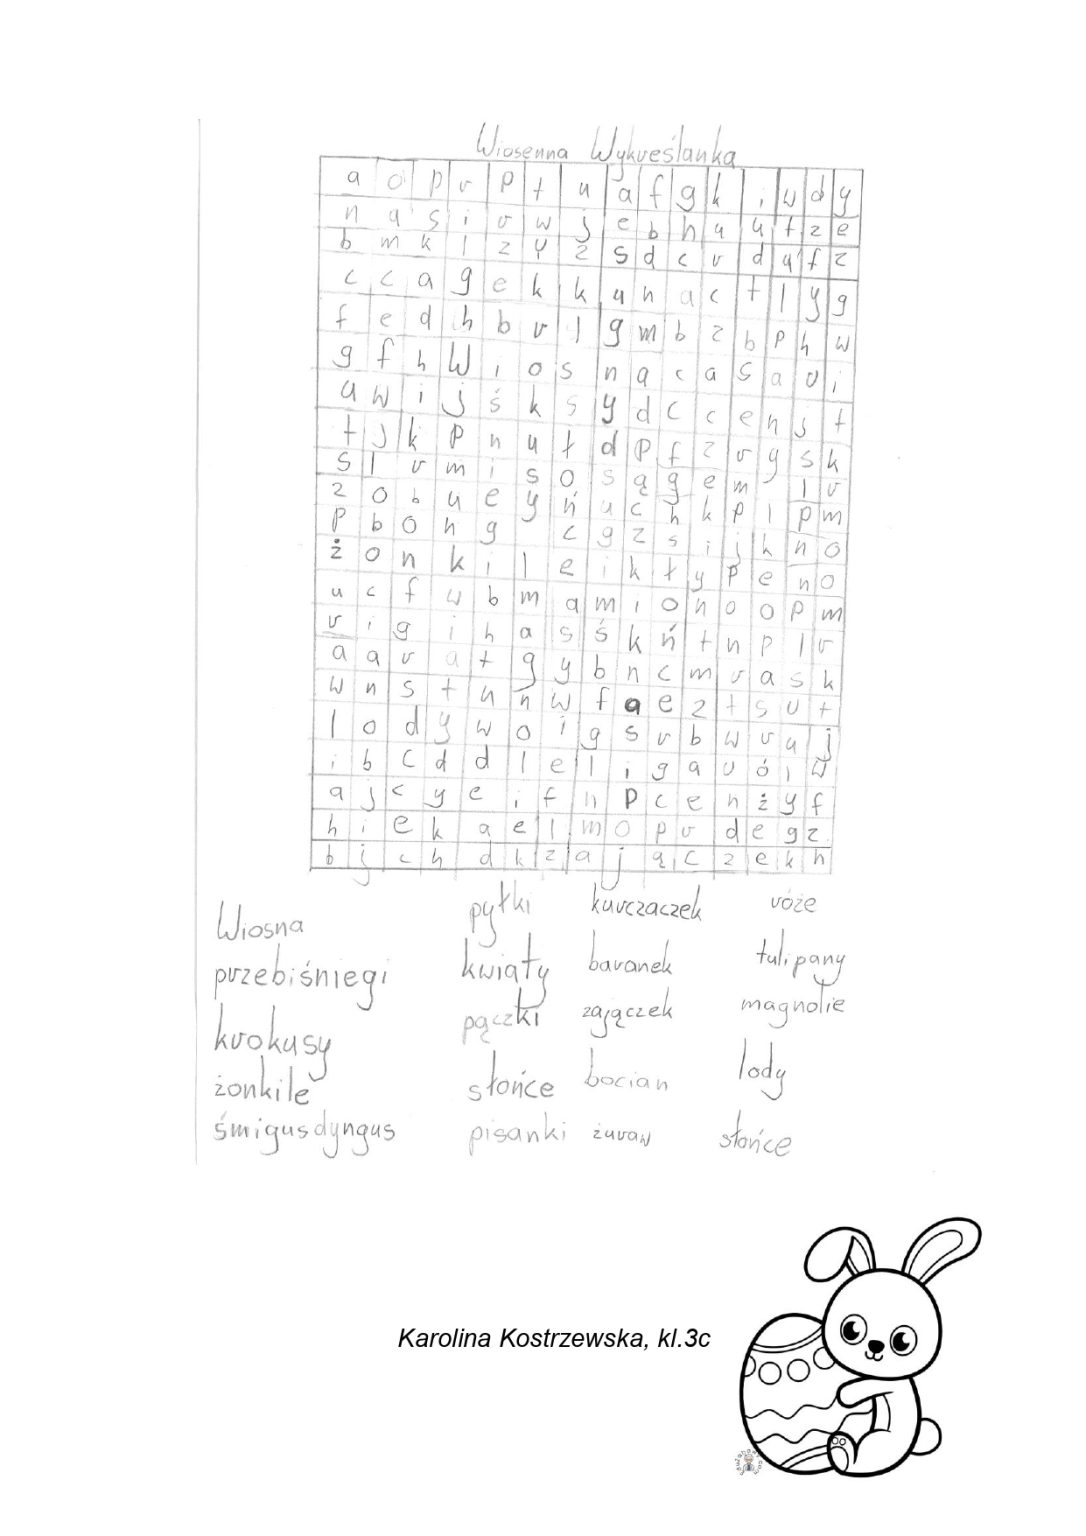 Wiosenna Wykreślanka
a o p r p t u a f g k i w d y
n a s i r w j e b h u u t z e
b m k l z y z s d c r d ą f z
c c a g e k k u n a c t l y g
f e d h b r l g m b z b p h w
g f h W i o s n a c a s a o i
u w i j ś k s y d c c e n j t
t j k p n u ł d p f z r y s k
s l r m i s o s ą g e m l r
z o b u e y ń u c h k p l p m
p b o n g c g z s i j k n o
ż o n k i l e i k ł y p e n o
u c f w b m a m i o n o o p m
r i g i h a s ś k ń t n p l r
a a r a t g y b n c m r a s k
w n s t u n w f a e z t s u t
l o d y w o i g s r b w r a j
i b c d d l e l i g a u ó i w
a j c y e i f n p c e n ż y f
h i e k a e l m o p r d e g z
b j c h d k z a j ą c z e k h
Wiosna pyłki kurczaczek róże
przebiśniegi kwiaty baranek tulipany
krokusy pączki zajączek magnolie
żonkile słońce bocian lody
śmigusdyngus pisanki żuraw słońce
Karolina Kostrzewska, kl.3c